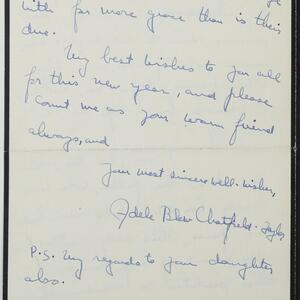 with far more grace than is their
due.
My best wishes to you all
for this new year, and please
count me as your warm friend
always, and
Your most sincere well-wisher,
Adele Blow Chatfield-Taylor
P.S. My regards to your daughter
also.